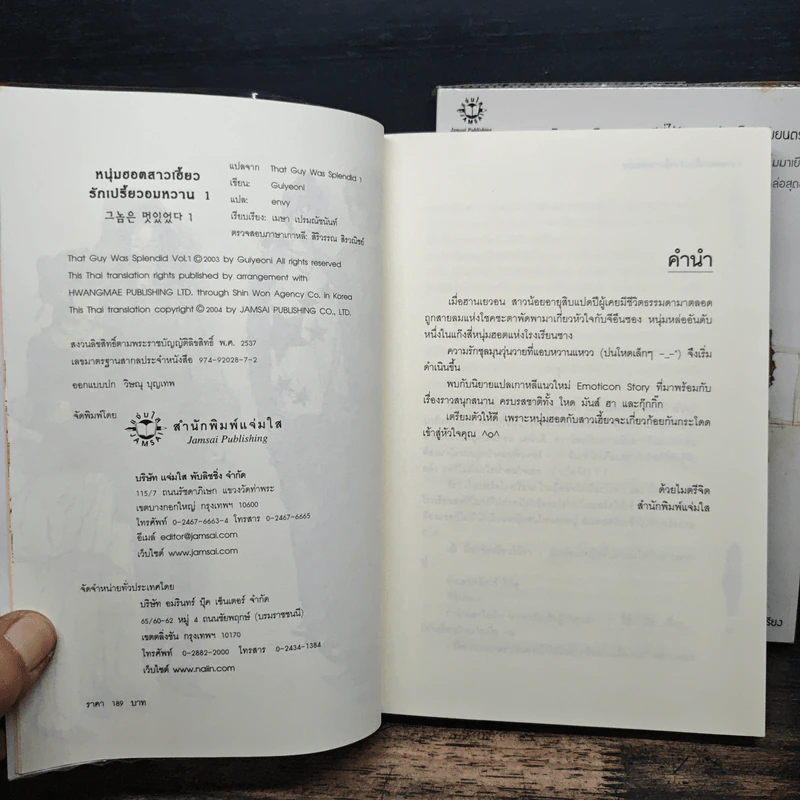 หนุ่มฮอตสาวเฮี้ยว
รักเปรี้ยวอมหวาน 1
그놈은 멋있었다 1
แปลจาก That Guy Was Splendid 1
เขียน: Guiyeoni
แปล: envy
เรียบเรียง: เมษา เปรมณัชนันท์
ตรวจสอบภาษาเกาหลี: สิริวรรณ สิรวณิชย์
That Guy Was Splendid Vol.1 © 2003 by Guiyeoni All rights reserved
This Thai translation rights published by arrangement with
HWANGMAE PUBLISHING LTD. through Shin Won Agency Co. in Korea
This Thai translation copyright © 2004 by JAMSAI PUBLISHING CO., LTD.
สงวนลิขสิทธิ์ตามพระราชบัญญัติลิขสิทธิ์ พ.ศ. 2537
เลขมาตรฐานสากลประจำหนังสือ 974-92028-7-2
ออกแบบปก วิษณุ บุญเทพ
จัดพิมพ์โดย
แจ่มใส
JAMSAI
สำนักพิมพ์แจ่มใส
Jamsai Publishing
บริษัท แจ่มใส พับลิชชิ่ง จำกัด
115/7 ถนนรัชดาภิเษก แขวงวัดท่าพระ
เขตบางกอกใหญ่ กรุงเทพฯ 10600
โทรศัพท์ 0-2467-6663-4 โทรสาร 0-2467-6665
อีเมล์ editor@jamsai.com
เว็บไซต์ www.jamsai.com
จัดจำหน่ายทั่วประเทศโดย
บริษัท อมรินทร์ บุ๊ค เซ็นเตอร์ จำกัด
65/60-62 หมู่ 4 ถนนชัยพฤกษ์ (บรมราชชนนี)
เขตตลิ่งชัน กรุงเทพฯ 10170
โทรศัพท์ 0-2882-2000 โทรสาร 0-2434-1384
เว็บไซต์ www.naiin.com
ราคา 189 บาท
คำนำ
เมื่อฮานเยวอน สาวน้อยอายุสิบแปดปีผู้เคยมีชีวิตธรรมดามาตลอด
ถูกสายลมแห่งโชคชะตาพัดพามาเกี่ยวหัวใจกับจีอึนซอง หนุ่มหล่ออันดับ
หนึ่งในแก๊งสี่หนุ่มฮอตแห่งโรงเรียนซาง
ความรักชุลมุนวุ่นวายที่แอบหวานแหวว (ปนโหดเล็กๆ -_-") จึงเริ่ม
ดำเนินขึ้น
พบกับนิยายแปลเกาหลีแนวใหม่ Emoticon Story ที่มาพร้อมกับ
เรื่องราวสนุกสนาน ครบรสชาติทั้ง โหด มันส์ ฮา และกุ๊กกิ๊ก
เตรียมตัวให้ดี เพราะหนุ่มฮอตกับสาวเฮี้ยวจะเกี่ยวก้อยกันกระโดด
เข้าสู่หัวใจคุณ ^o^
ด้วยไมตรีจิต
สำนักพิมพ์แจ่มใส
Jamsai Publishing